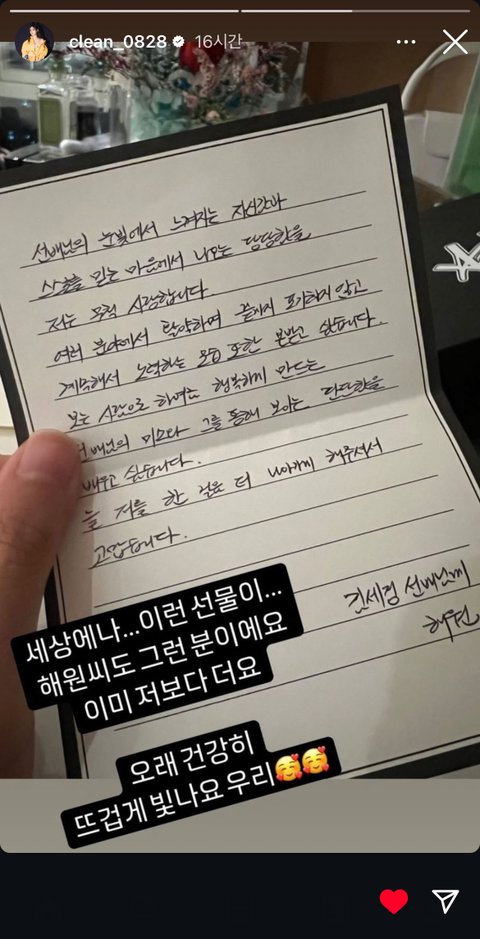 clean_0828 16시간
선배님의 눈빛에서 느껴지는 자신감과
스스로를 믿는 마음에서 나오는 당당함을
저는 무척 사랑합니다
여러 분야에서 활약하며 끝까지 포기하지 않고
계속해서 노력하는 모습 또한 본받고 싶습니다.
보는 사람으로 하여금 행복하게 만드는
선배님의 미소와 그를 통해 보이는 단단함을
배우고 싶습니다.
늘 저를 한 걸음 더 나아가게 해주셔서
고맙습니다.
김세정 선배님께
해원
세상에나...이런 선물이...
해원씨도 그런 분이에요
이미 저보다 더요
오래 건강히
뜨겁게 빛나요 우리🥰🥰